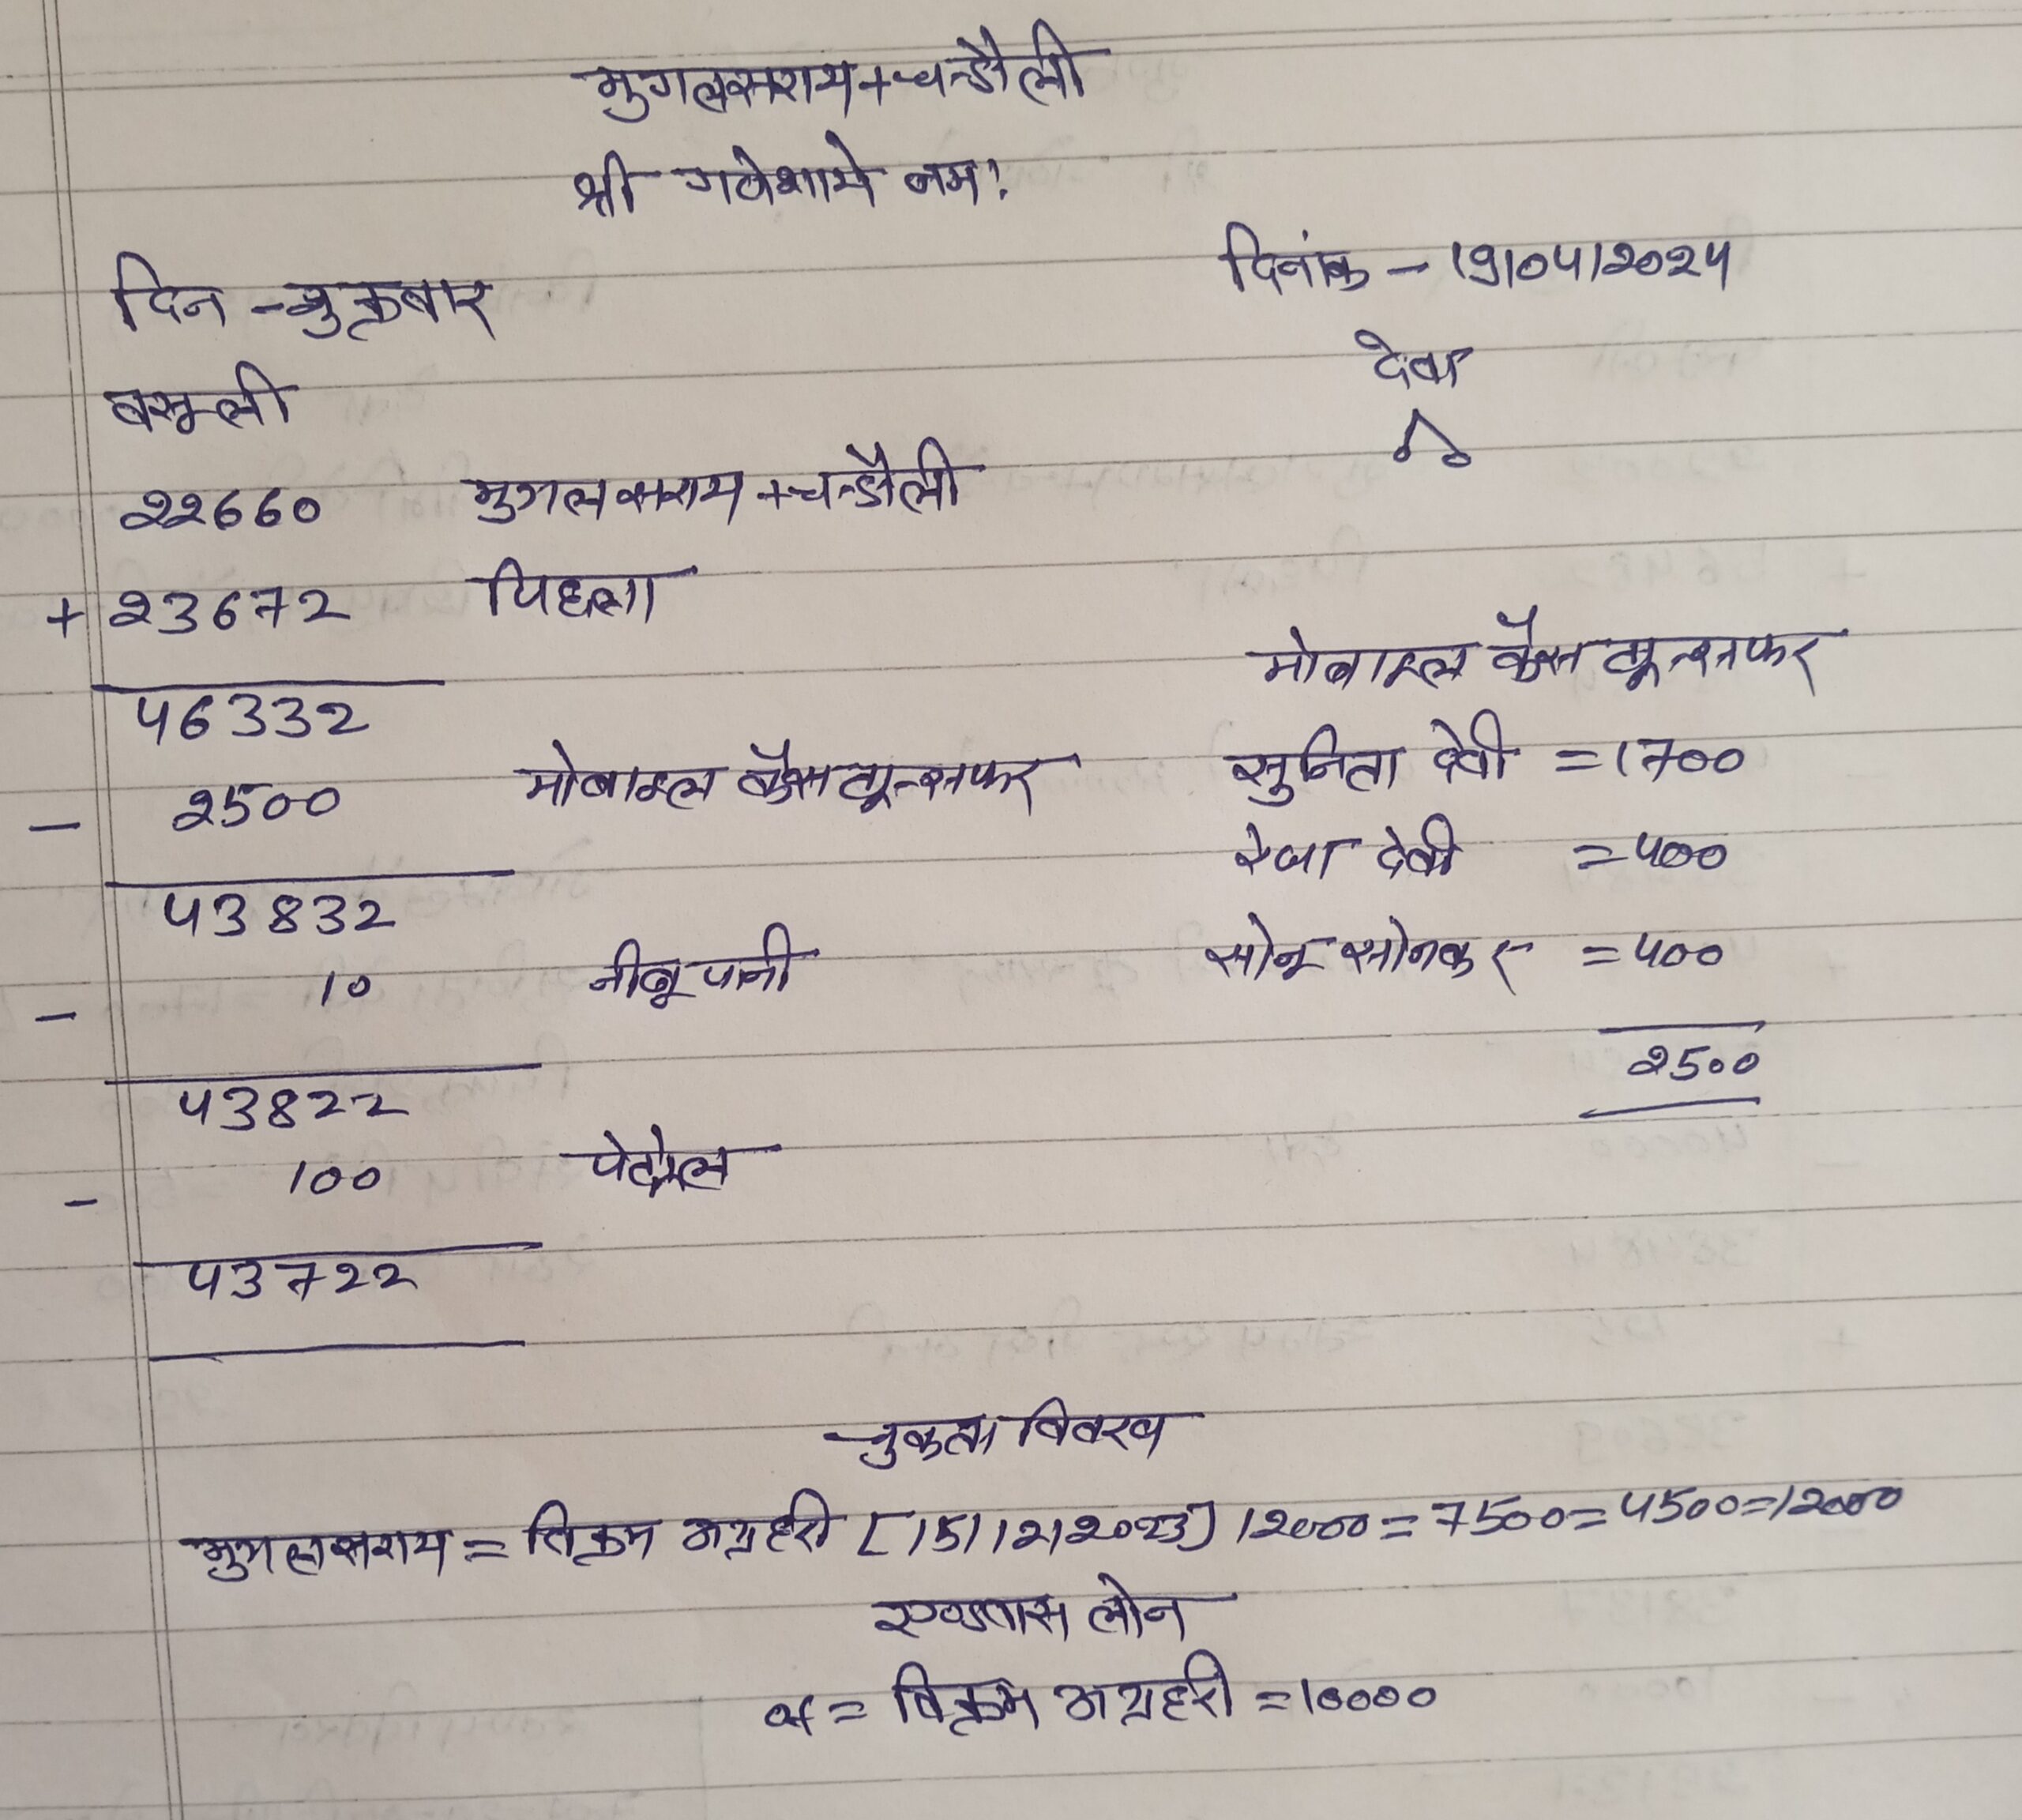 मुगलसराय+चन्डौली
श्री गणेशाये नम:
दिनांक - 19/04/2024
दिन - शुक्रबार
देवा
बसूली
22660 मुगलसराय+चन्डौली
+ 23672 पिछला
46332
- 2500 मोबाइल कैस ट्रान्सफर
43832
- 10 नीबू पानी
43822
- 100 पेट्रोल
43722
मोबाइल कैस ट्रान्सफर
सुनिता देवी = 1700
देवी = 400
सोनू सोनकर = 400
2500
चुकता विवरण
मुगलसराय = विक्रम अग्रहरी [15/12/2023] 12000 = 7500 = 4500 = 12000
लोन
= विक्रम अग्रहरी = 10000